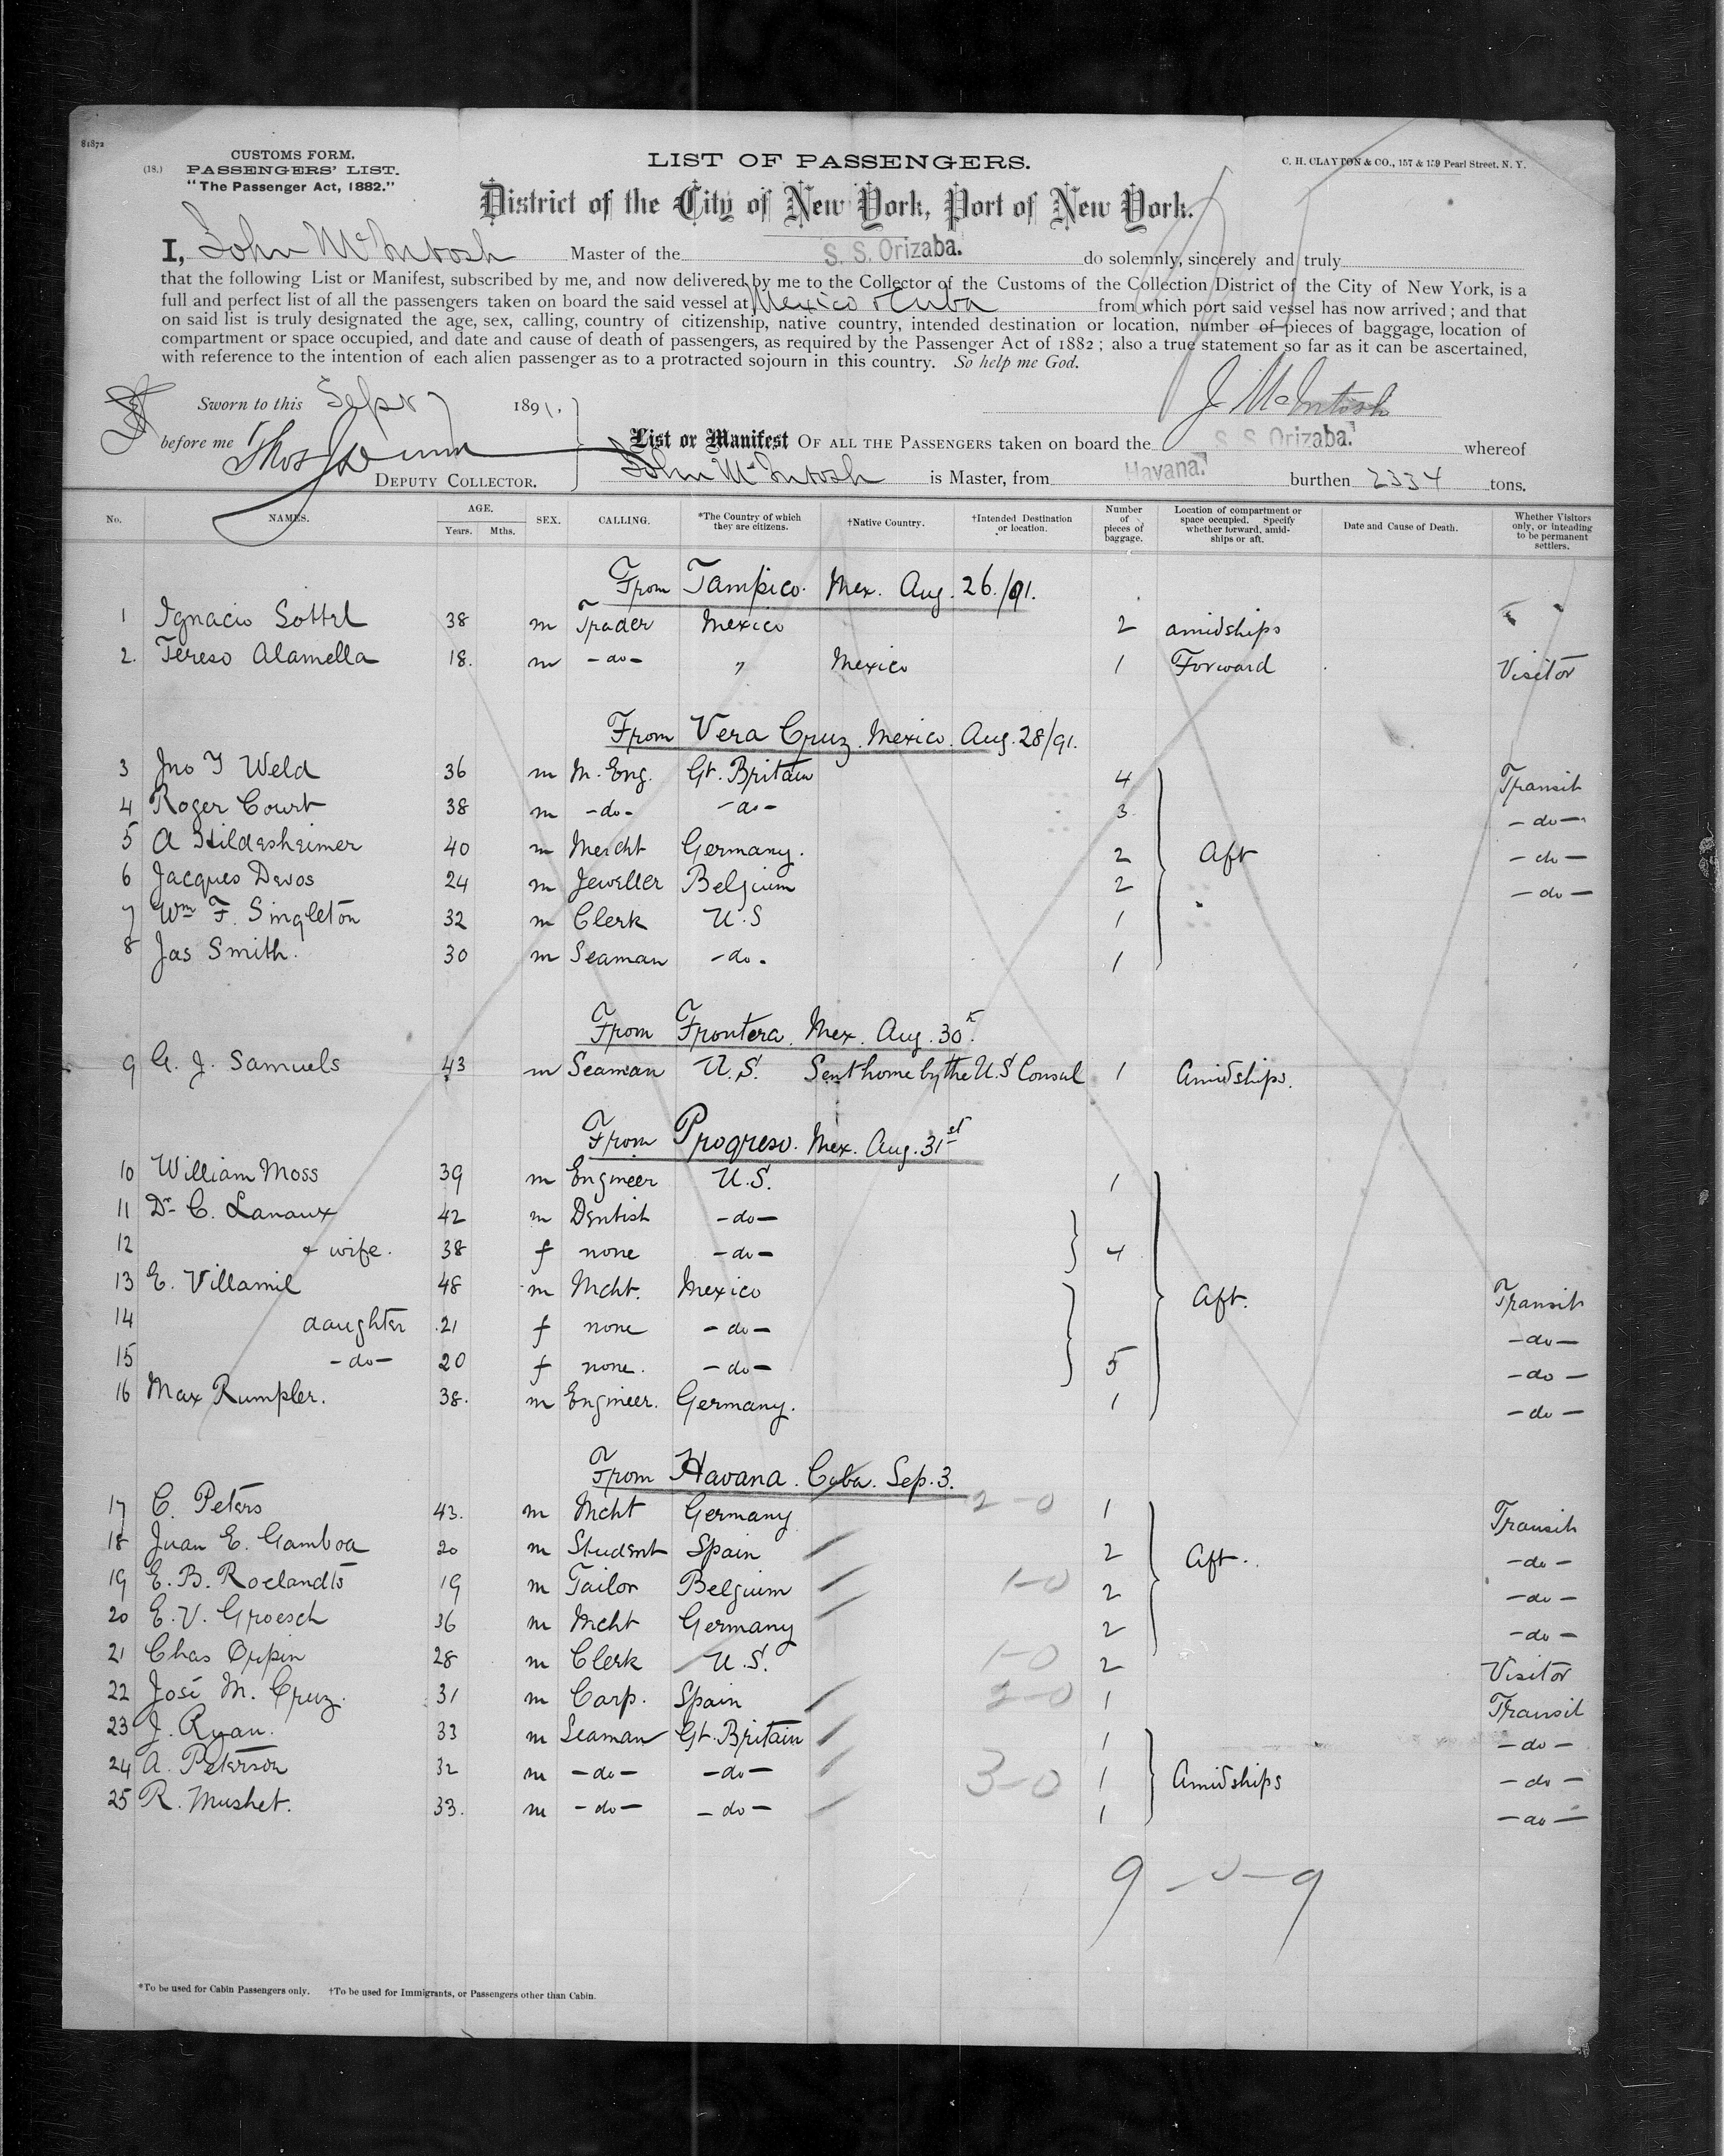 81872
(18.)
CUSTOMS FORM.
PASSENGERS' LIST.
"The Passenger Act, 1882."
LIST OF PASSENGERS.
C. H. CLAYTON & CO., 157 & 159 Pearl Street, N. Y.
District of the City of New York, Port of New York.
I, John McIntosh Master of the S. S. Orizaba. do solemnly, sincerely and truly
that the following List or Manifest, subscribed by me, and now delivered by me to the Collector of the Customs of the Collection District of the City of New York, is a
full and perfect list of all the passengers taken on board the said vessel at Mexico & Cuba from which port said vessel has now arrived; and that
on said list is truly designated the age, sex, calling, country of citizenship, native country, intended destination or location, number of pieces of baggage, location of
compartment or space occupied, and date and cause of death of passengers, as required by the Passenger Act of 1882; also a true statement so far as it can be ascertained,
with reference to the intention of each alien passenger as to a protracted sojourn in this country. So help me God.
Sworn to this Sept 7 1891. J McIntosh
before me Thos Dunn
DEPUTY COLLECTOR.
List or Manifest OF ALL THE PASSENGERS taken on board the S. S. Orizaba. whereof
John McIntosh is Master, from Havana. burthen 2334 tons.
No. NAMES. AGE. Years. Mths. SEX. CALLING. *The Country of which they are citizens. †Native Country. †Intended Destination or location. Number of pieces of baggage. Location of compartment or space occupied. Specify whether forward, amidships or aft. Date and Cause of Death. Whether Visitors only, or intending to be permanent settlers.
From Tampico. Mex. Aug. 26./91.
1 Ignacio Sottel 38 m Trader Mexico 2 amidships
2. Tereso Alamella 18. m -do- " Mexico 1 Forward Visitor
From Vera Cruz. Mexico. Aug. 28/91.
3 Jno T Weld 36 m M. Eng. Gt. Britain 4 Transit
4 Roger Court 38 m -do- -do- 3 -do-
5 A Hildesheimer 40 m Mercht Germany. 2 Aft -do-
6 Jacques Devos 24 m Jeweller Belgium 2 -do-
7 Wm F. Singleton 32 m Clerk U.S 1
8 Jas Smith. 30 m Seaman -do. 1
From Frontera. Mex. Aug. 30th.
9 G. J. Samuels 43 m Seaman U.S. Sent home by the U.S Consul 1 Amidships.
From Progreso. Mex. Aug. 31st
10 William Moss 39 m Engineer U.S. 1
11 Dr C. Lanaux 42 m Dentist -do-
12 & wife. 38 f none -do- 4
13 E. Villamil 48 m Mcht. Mexico Aft. Transit
14 daughter 21 f none -do- -do-
15 -do- 20 f none. -do- 5 -do-
16 Max Rumpler. 38. m Engineer. Germany. 1 -do-
From Havana. Cuba. Sep. 3.
17 C. Peters 43. m Mcht Germany 2-0 1 Transit
18 Juan E. Gamboa 20 m Student Spain 2 Aft. -do-
19 E. B. Roelandts 19 m Tailor Belgium 1-0 2 -do-
20 E. V. Groesch 36 m Mcht Germany 2 -do-
21 Chas Orpin 28 m Clerk U.S. 1-0 2 Visitor
22 José M. Cruz. 31 m Carp. Spain 2-0 1 Transit
23 J. Ryan. 33 m Seaman Gt. Britain 1 -do-
24 A. Peterson 32 m -do- -do- 3-0 1 Amidships -do-
25 R. Mushet. 33. m -do- -do- 1 -do-
9-0-9
*To be used for Cabin Passengers only. †To be used for Immigrants, or Passengers other than Cabin.